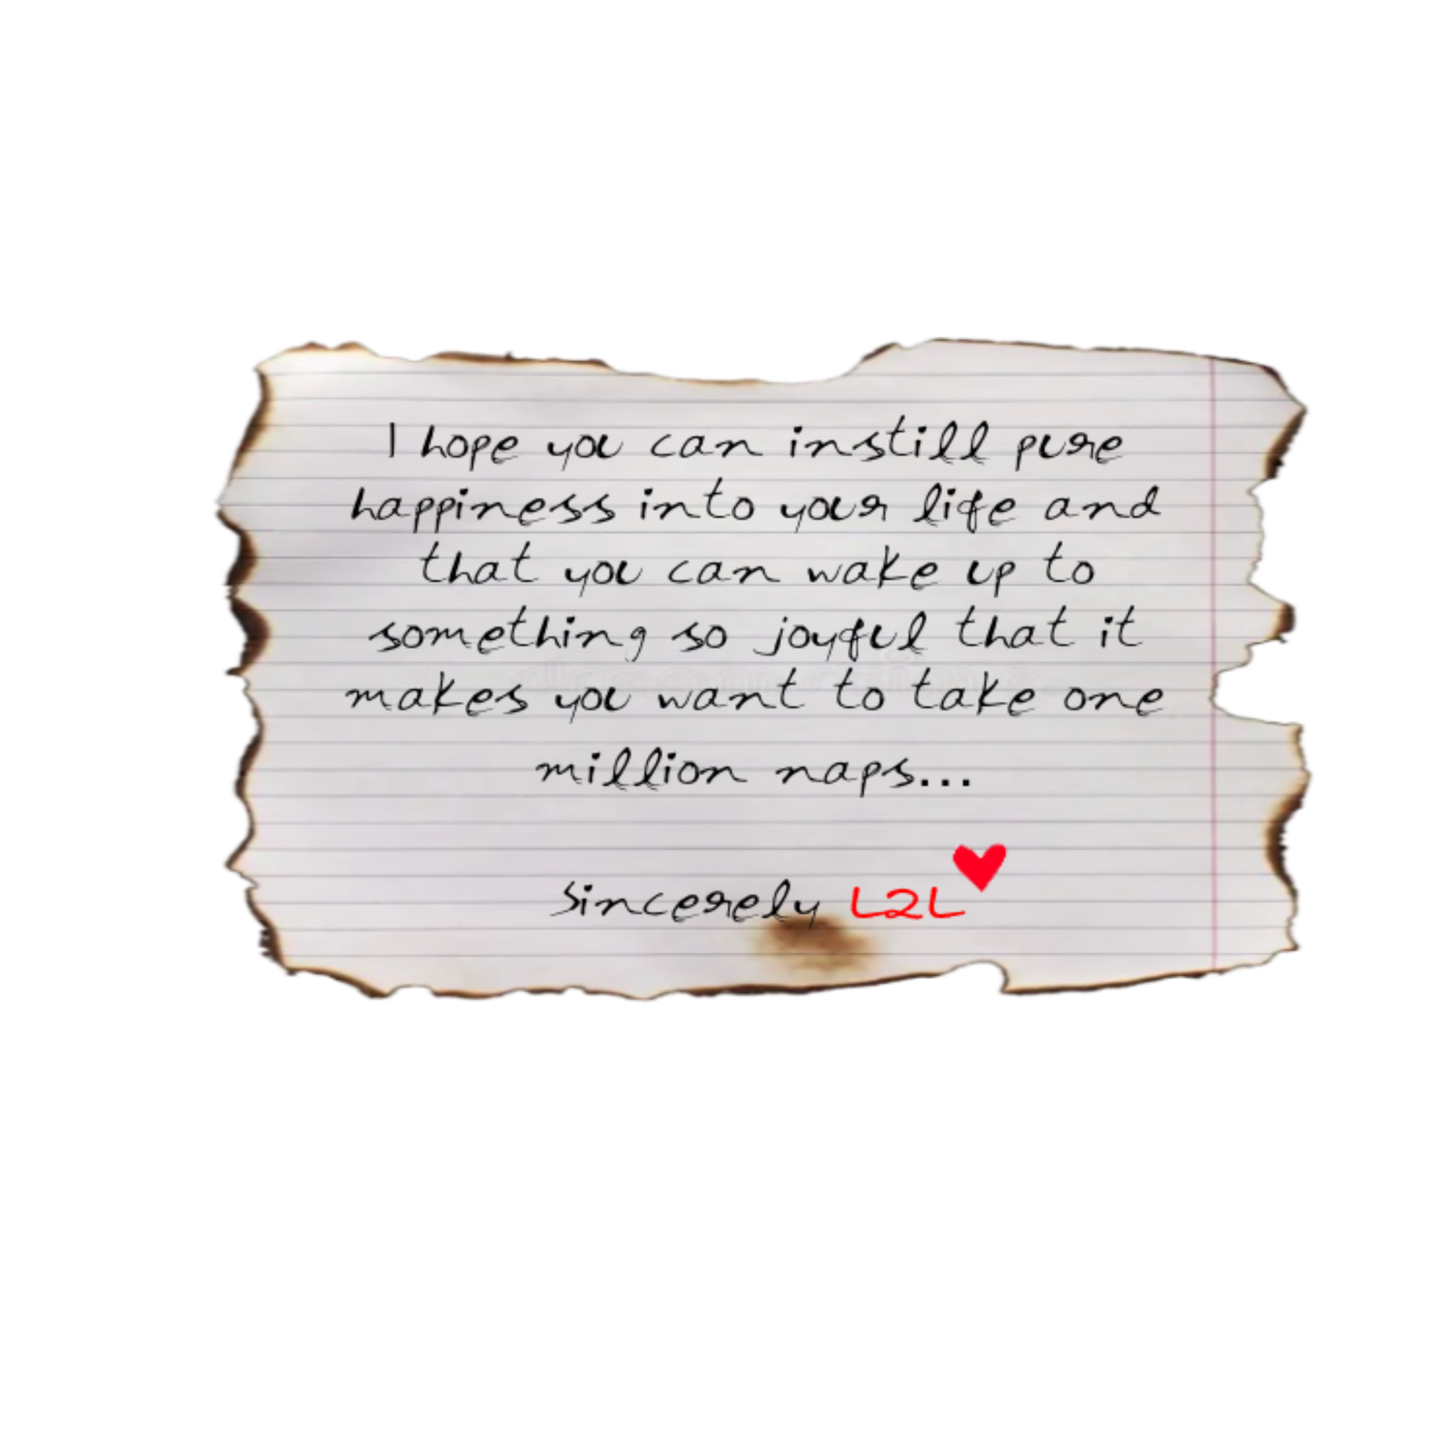 I hope you can instill pure
happiness into your life and
that you can wake up to
something so joyful that it
makes you want to take one
million naps...
Sincerely L2L